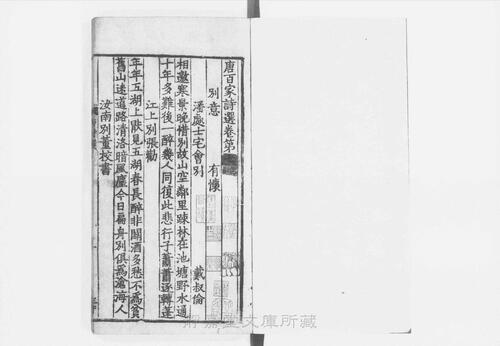 唐百家詩選卷第
別意　有懷
潘處士宅會別　戴叔倫
相邀寒景晚惜別故山空鄰里踈林在池塘野水通
十年多難後一醉幾人同復此悲行子蕭蕭逐轉蓬
江上別張勸
年年五湖上猒見五湖春長醉非關酒多愁不爲貧
舊山迷道路清洛暗風塵今日扁舟別俱爲滄海人
汝南別董校書
嘉堂文庫所藏